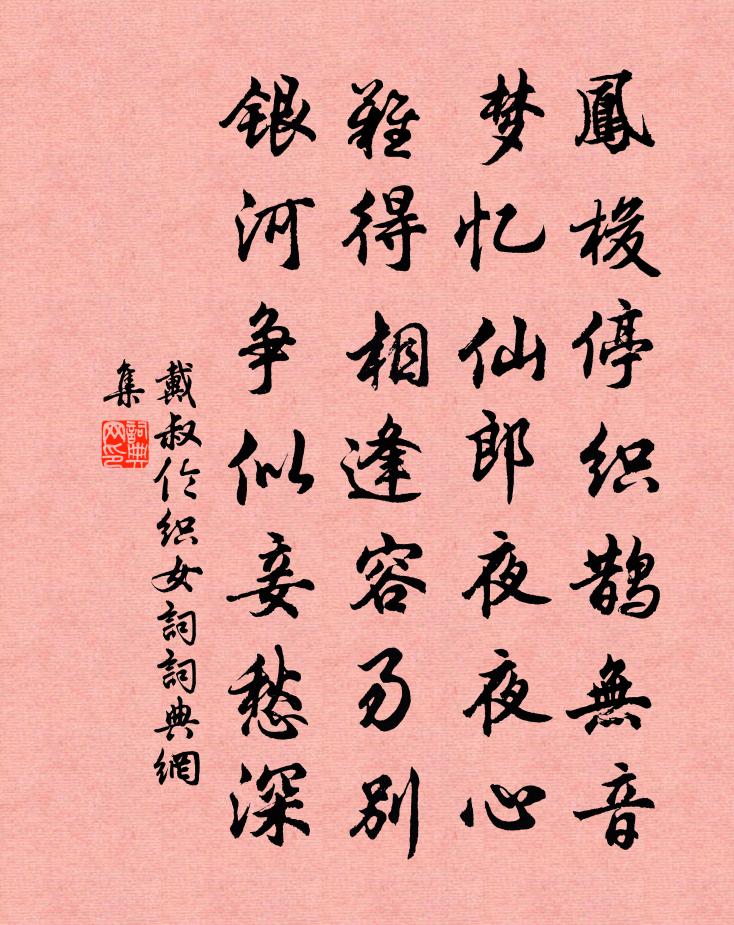 鳳梭停织鹊無音
梦忆仙郎夜夜心
難得相逢容易别
银河争似妾愁深
戴叔伦织女詞詞典網
集
詞典
网印